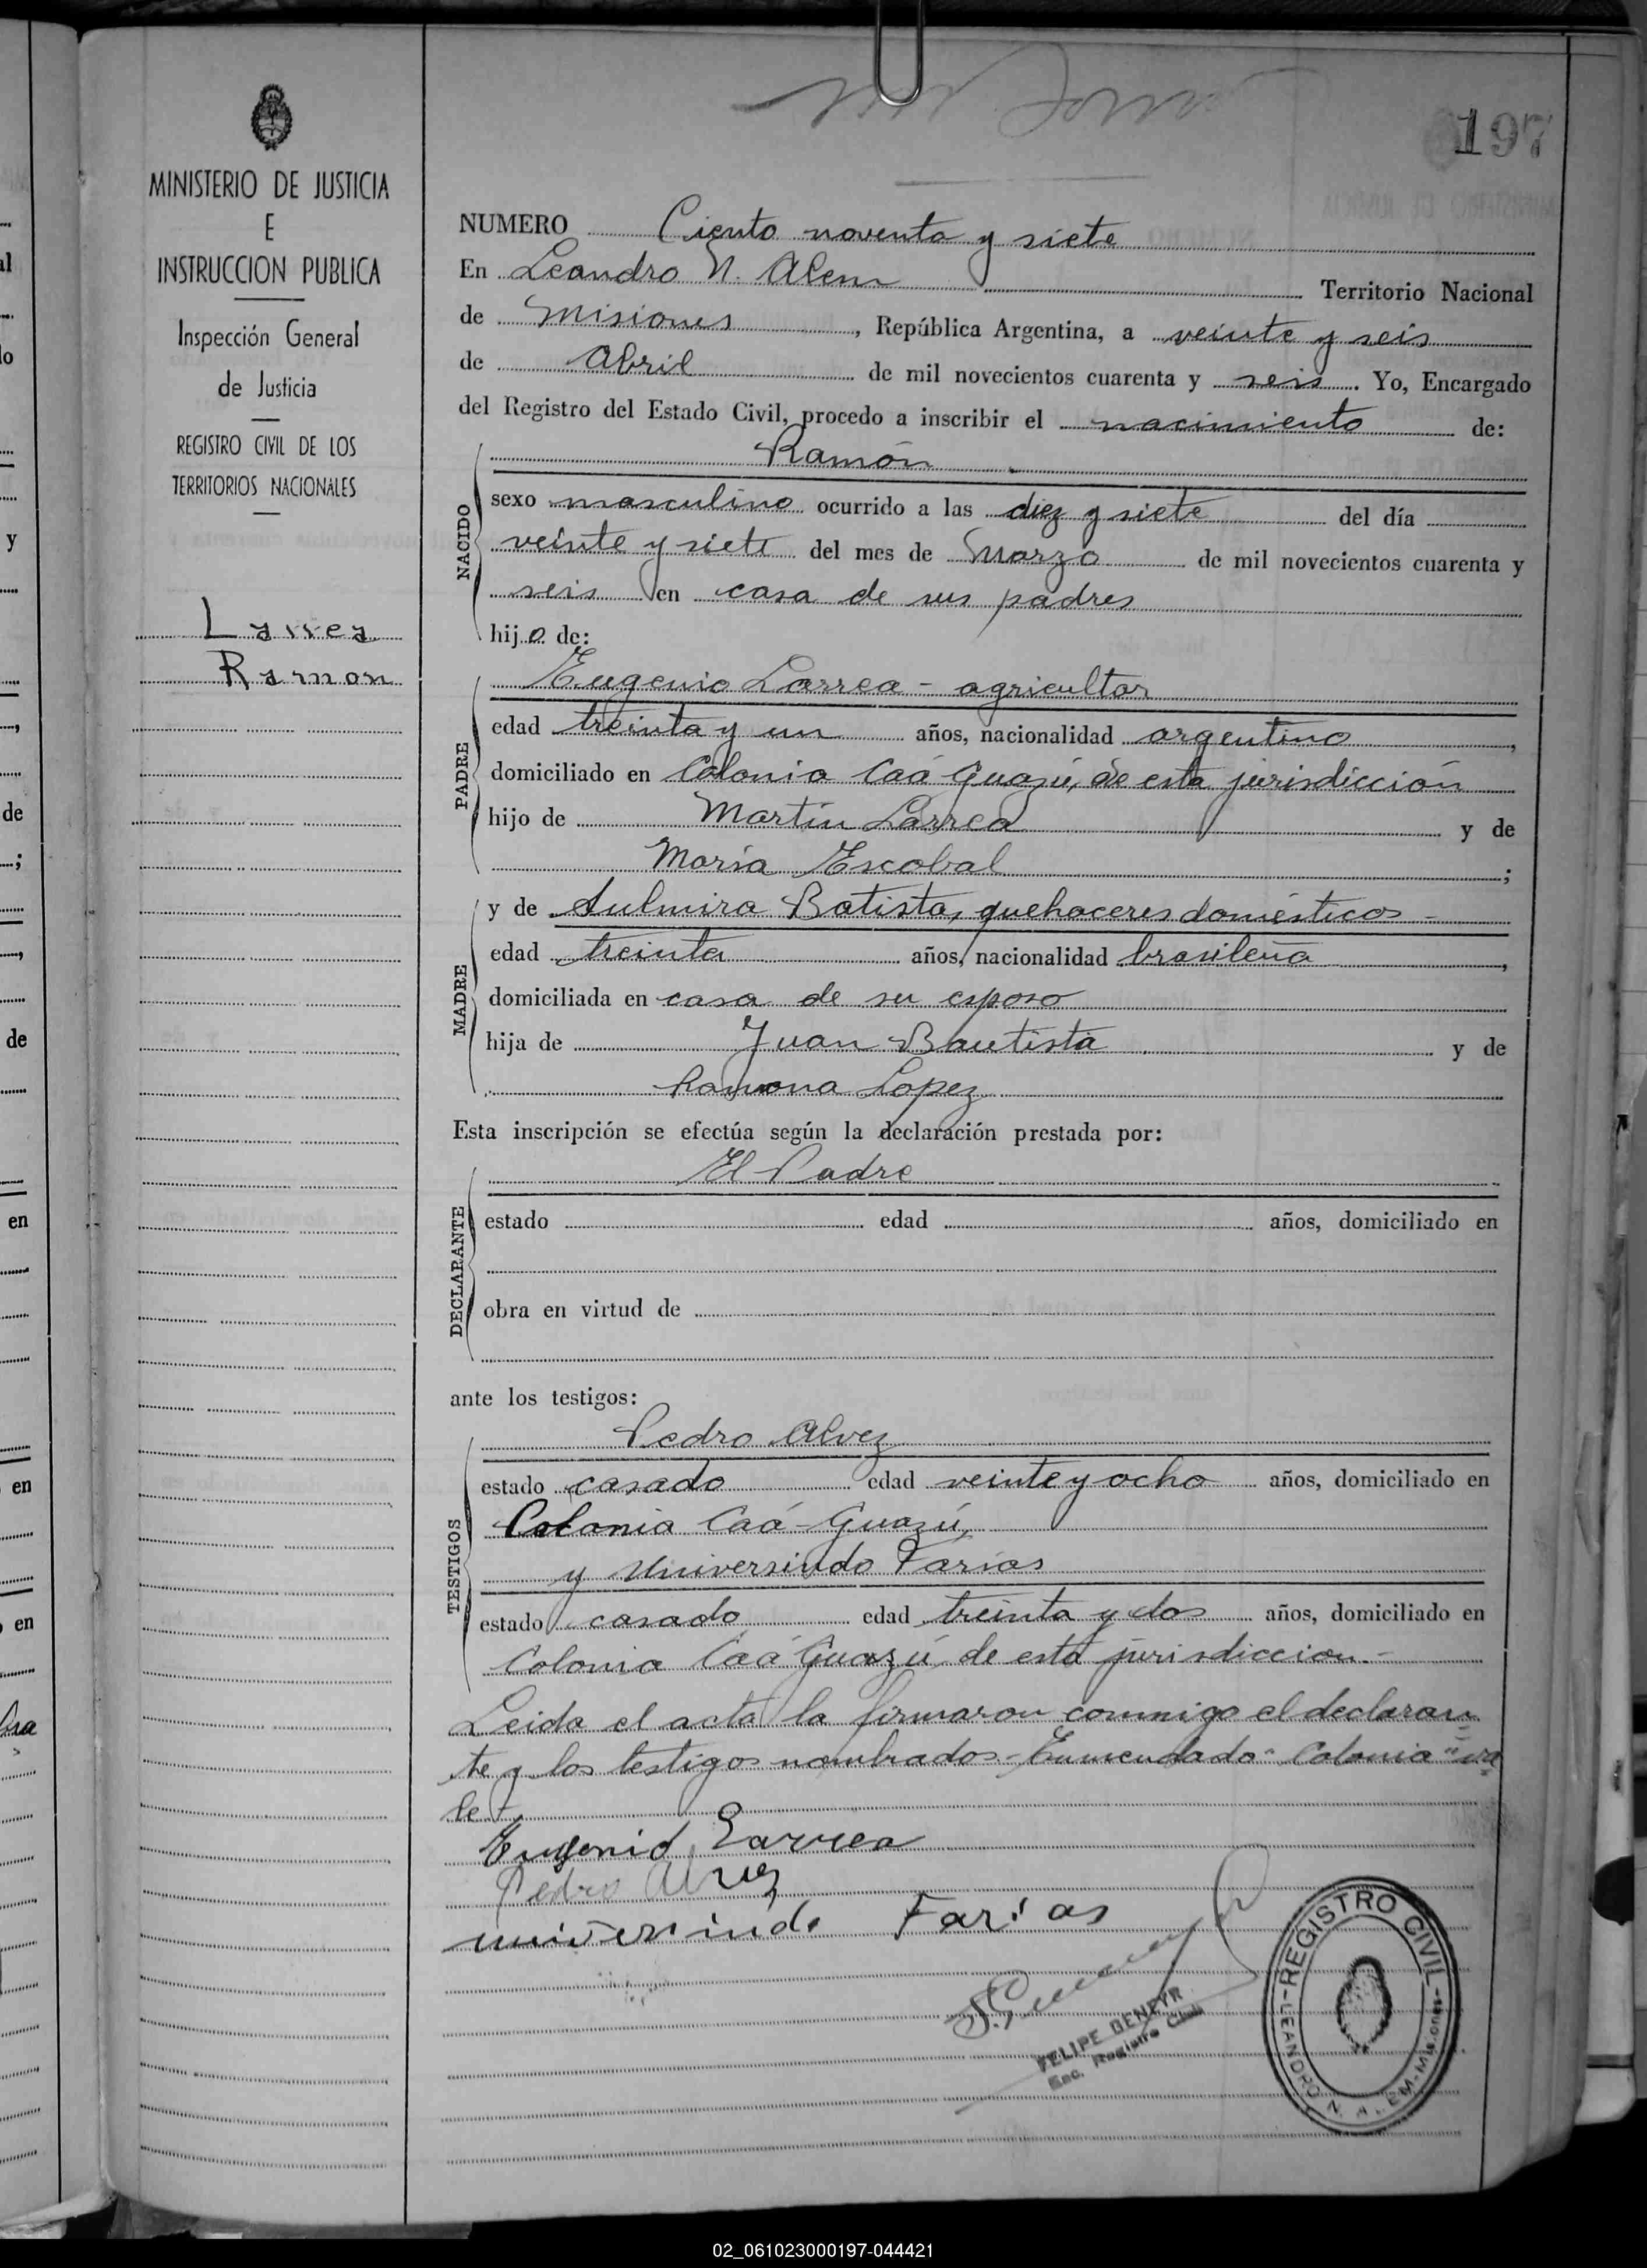 197
MINISTERIO DE JUSTICIA
E
INSTRUCCION PUBLICA
Inspección General
de Justicia
REGISTRO CIVIL DE LOS
TERRITORIOS NACIONALES
Larrea
Ramon
NUMERO Ciento noventa y siete
En Leandro N. Alem Territorio Nacional
de Misiones, República Argentina, a veinte y seis
de Abril de mil novecientos cuarenta y seis. Yo, Encargado
del Registro del Estado Civil, procedo a inscribir el nacimiento de:
Ramón
NACIDO
sexo masculino ocurrido a las diez y siete del día
veinte y siete del mes de Marzo de mil novecientos cuarenta y
seis en casa de sus padres
hijo de:
Eugenio Larrea - agricultor
PADRE
edad treinta y un años, nacionalidad argentino,
domiciliado en Colonia Caá Guazú, de esta jurisdicción
hijo de Martín Larrea y de
María Escobal;
y de Sulmira Batista, quehaceres domésticos -
MADRE
edad treinta años, nacionalidad brasileña,
domiciliada en casa de su esposo
hija de Juan Bautista y de
Ramona Lopez
Esta inscripción se efectúa según la declaración prestada por:
El Padre
DECLARANTE
estado edad años, domiciliado en
obra en virtud de
ante los testigos:
Pedro Alvez
TESTIGOS
estado casado edad veinte y ocho años, domiciliado en
Colonia Caá-Guazú,
y Universindo Farias
estado casado edad treinta y dos años, domiciliado en
Colonia Caá Guazú, de esta jurisdiccion.-
Leida el acta la firmaron conmigo el declaran
te y los testigos nombrados.- Enmendado "Colonia" va
le.
Eugenio Larrea
Pedro Alvez
universindo Farias
FELIPE BENEYR
Enc. Registro Civil
REGISTRO CIVIL
LEANDRO N. ALEM-Misiones-
02_061023000197-044421